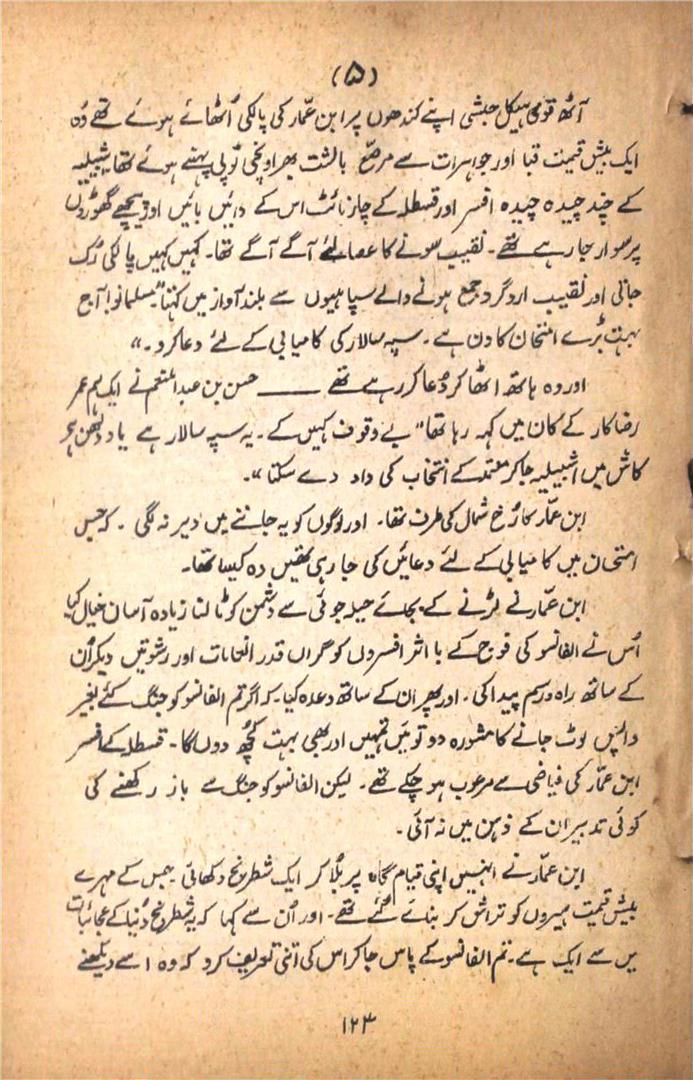 (۵)
آٹھ قوی ہیکل حبشی اپنے کندھوں پر ابن عمّار کی پالکی اُٹھائے ہوئے تھے وُہ
ایک بیش قیمت قبا اور جواہرات سے مرصّع بالشت بھر اونچی ٹوپی پہنے ہوئے تھا۔ اشبیلیہ
کے چند چیدہ چیدہ افسر اور قسطلہ کے چار نائٹ اس کے دائیں بائیں اور پیچھے گھوڑوں
پر سوار جا رہے تھے۔ نقیب سونے کا عصا لئے آگے آگے تھا۔ کہیں کہیں پالکی رُک
جاتی اور نقیب ارد گرد جمع ہونے والے سپاہیوں سے بلند آواز میں کہتا "مسلمانو! آج
بہت بڑے امتحان کا دن ہے۔ سپہ سالار کی کامیابی کے لئے دعا کرو۔"
اور وہ ہاتھ اٹھا کر دُعا کر رہے تھے ــــــ حسن بن عبدالمنعم نے ایک ہم عمر
رضاکار کے کان میں کہہ رہا تھا" بے وقوف کہیں کے۔ یہ سپہ سالار ہے یا دلہن ہے
کاش میں اشبیلیہ جا کر معتمد کے انتخاب کی داد دے سکتا"۔
ابن عمّار کا رُخ شمال کی طرف تھا۔ اور لوگوں کو یہ جاننے میں دیر نہ لگی۔ کہ جس
امتحان میں کامیابی کے لئے دعائیں کی جا رہی تھیں وہ کیسا تھا۔
ابن عمّار نے لڑنے کے بجائے حیلہ جوئی سے دشمن کو ٹالنا زیادہ آسان خیال کیا
اُس نے الفانسو کی فوج کے با اثر افسروں کو گراں قدر انعامات اور رشوتیں دیکر اُن
کے ساتھ راہ و رسم پیدا کی۔ اور پھر ان کے ساتھ وعدہ کیا۔ کہ اگر تم الفانسو کو جنگ کئے بغیر
واپس لوٹ جانے کا مشورہ دو تو میں تمہیں اور بھی بہت کچھ دوں گا۔ قسطلہ کے افسر
ابن عمّار کی فیاضی سے مرعوب ہو چکے تھے۔ لیکن الفانسو کو جنگ سے باز رکھنے کی
کوئی تدبیر ان کے ذہن میں نہ آئی۔
ابن عمّار نے انہیں اپنی قیام گاہ پر بلا کر ایک شطرنج دکھائی۔ جس کے مہرے
بیش قیمت ہیروں کو تراش کر بنائے گئے تھے۔ اور اُن سے کہا کہ یہ شطرنج دُنیا کے عجائبات
میں سے ایک ہے۔ تم الفانسو کے پاس جا کر اس کی اتنی تعریف کرو کہ وہ اسے دیکھنے
۱۲۳